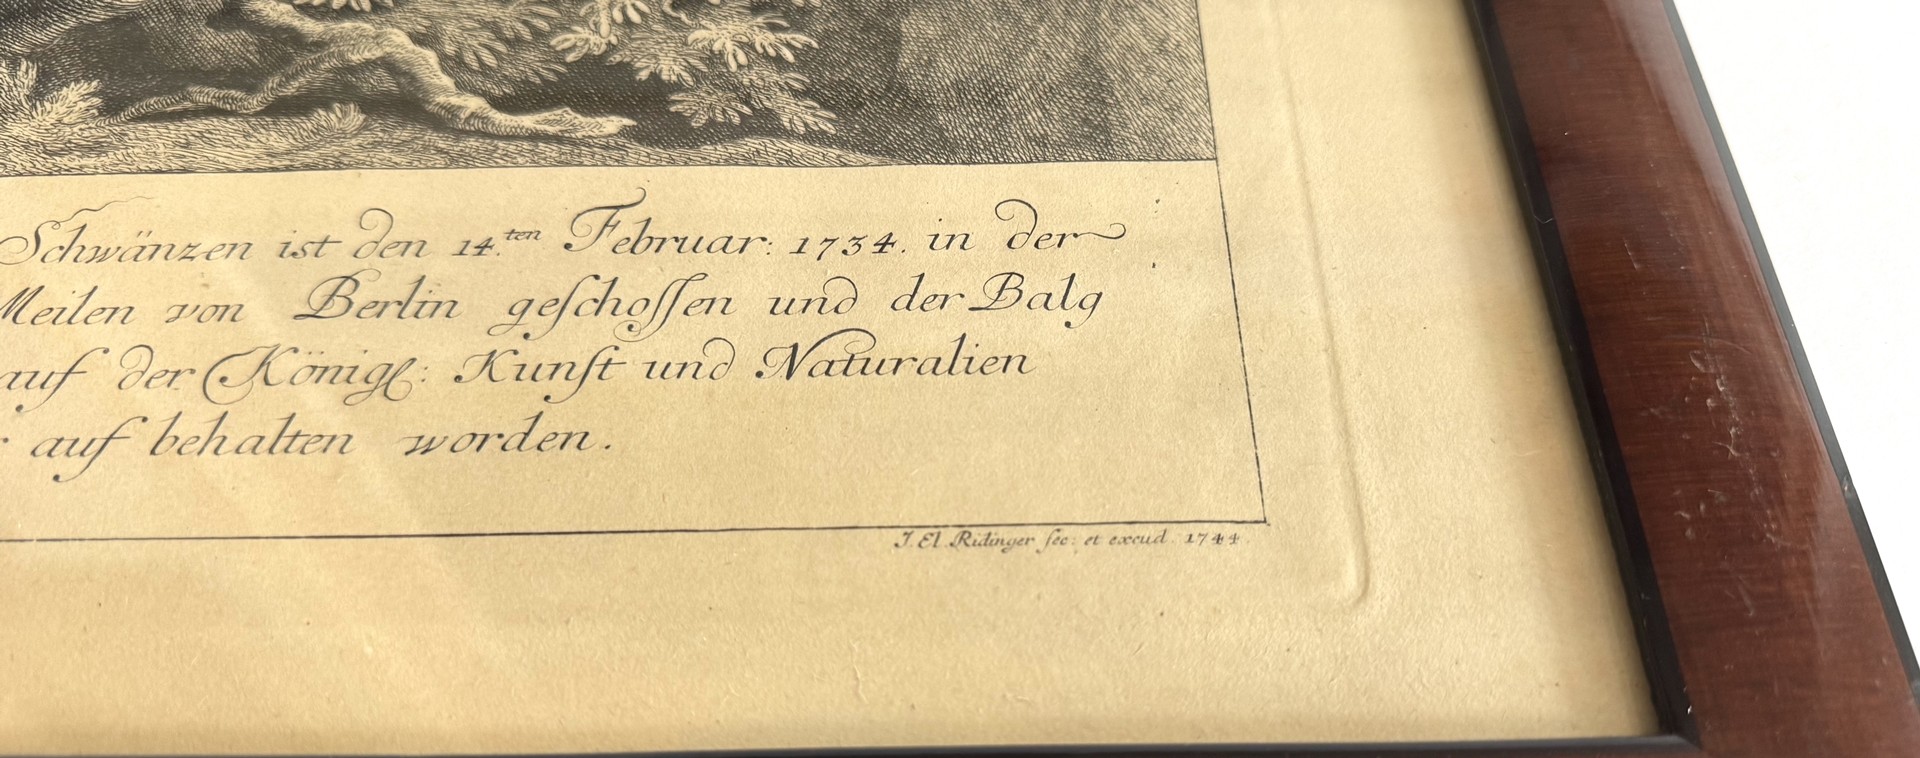 Schwänzen ist den 14.ten Februar: 1734. in der
Meilen von Berlin geſchoſſen und der Balg
auf der Königl: Kunſt und Naturalien
auf behalten worden.
J. El. Ridinger fec: et excud. 1744.